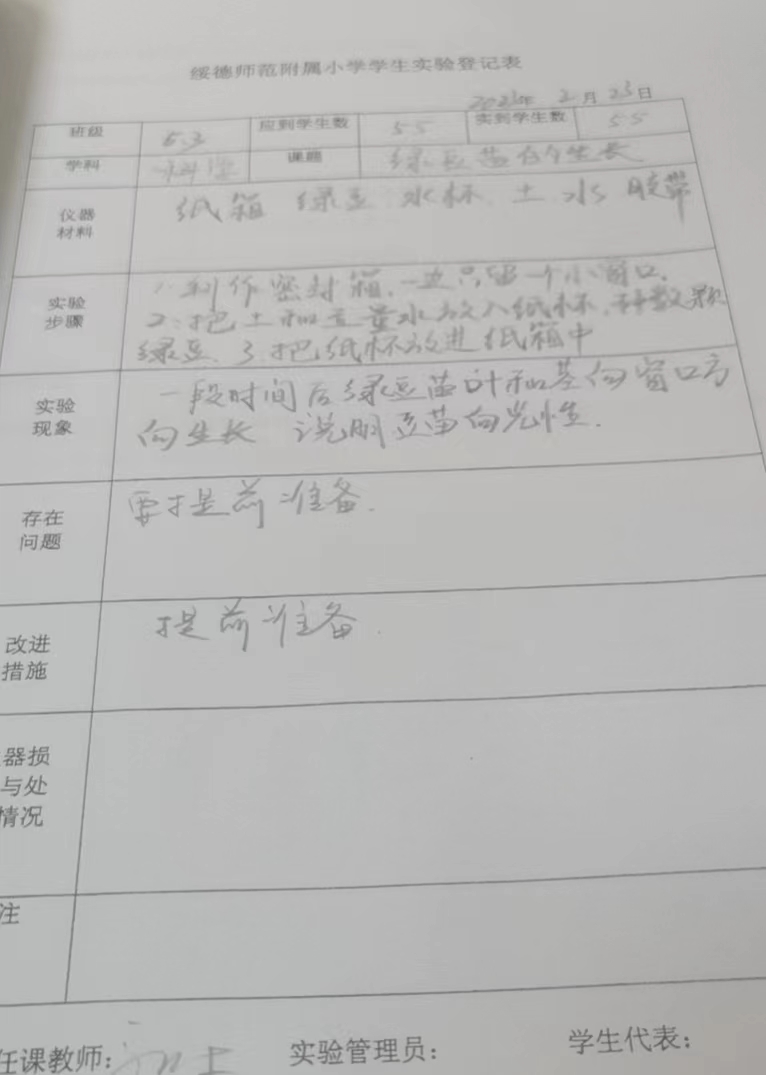 绥德师范附属小学学生实验登记表
2023年 2月 23日
班级 5.3 应到学生数 55 实到学生数 55
学科 科学 课题 绿豆苗的生长
仪器
材料
纸箱 绿豆 水杯 土 水 胶带
实验
步骤
1. 制作密封箱，一边只留一个小窗口，
2. 把土和适量水放入纸杯，种数颗
绿豆. 3. 把纸杯放进纸箱中
实验
现象
一段时间后绿豆苗叶和茎向窗口方
向生长 说明豆苗向光性.
存在
问题
要提前准备.
改进
措施
提前准备.
器损
与处
情况
注
任课教师:
实验管理员:
学生代表: